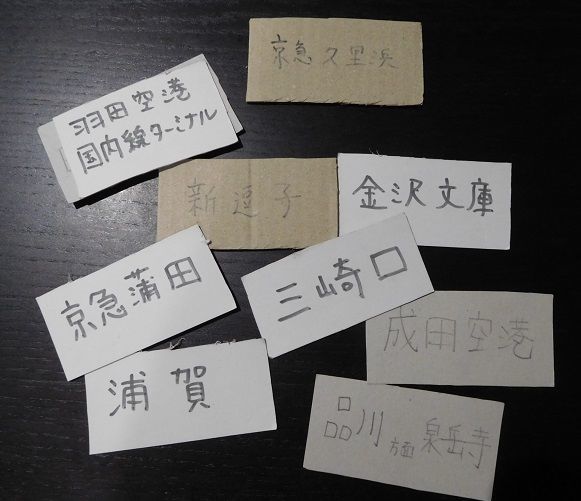 京急久里浜
羽田空港
国内線ターミナル
新逗子
金沢文庫
京急蒲田
三崎口
成田空港
浦賀
品川方面泉岳寺